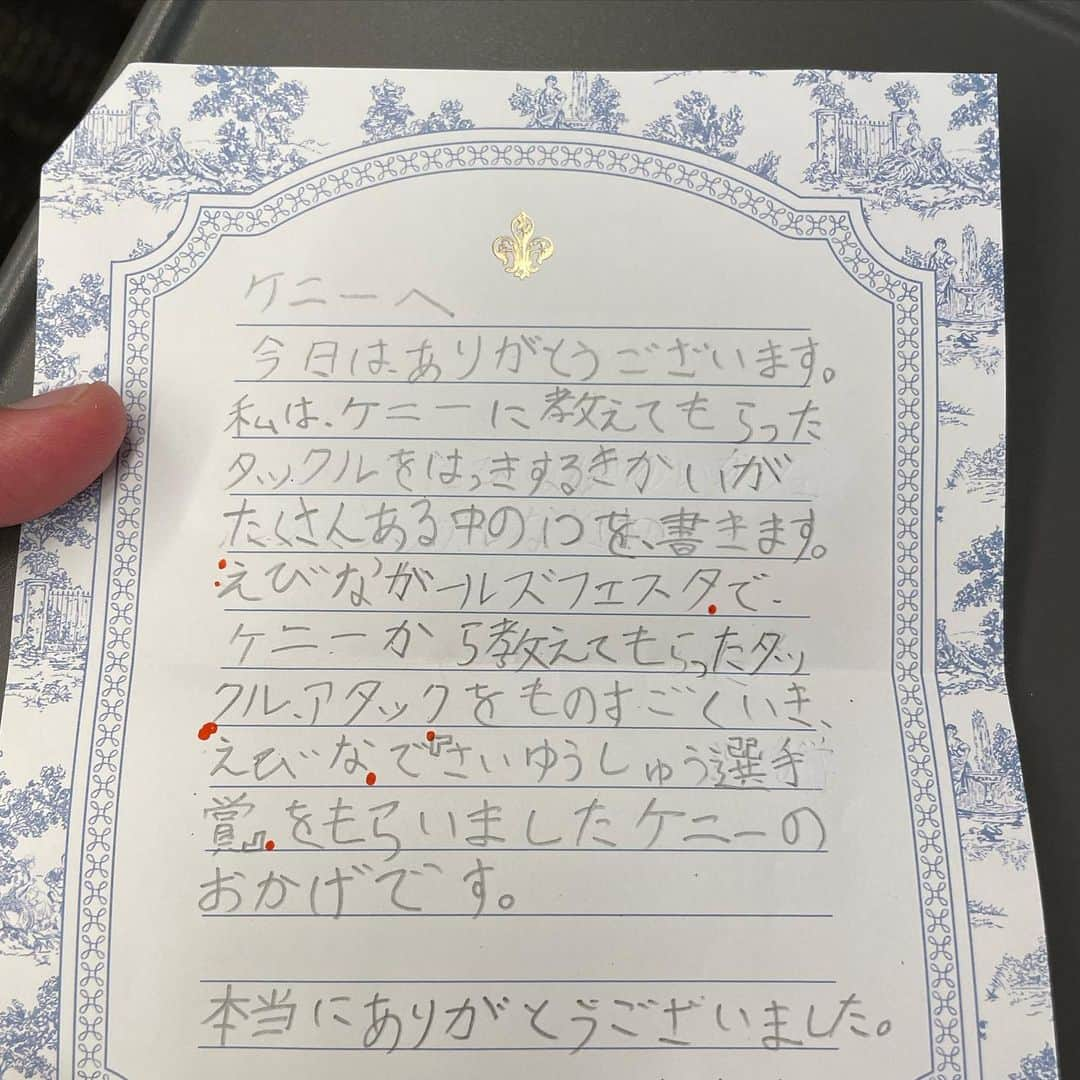 ケニーへ
今日は、ありがとうございます。
私は、ケニーに教えてもらった
タックルをはっきするきかいが
たくさんある中の1つを、書きます。
えびなガールズフェスタで、
ケニーから教えてもらったタッ
クル、アタックをものすごくいき、
えびなで『さいゆうしゅう選手
賞』をもらいましたケニーの
おかげです。
本当にありがとうございました。